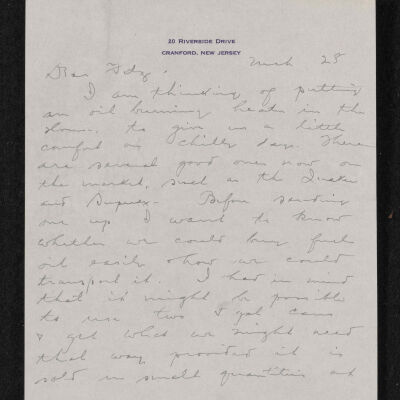 20 RIVERSIDE DRIVE
CRANFORD, NEW JERSEY
March 28
Dear
I am thinking of putting
an oil burning heater in the
House to give us a little
comfort on chilly days. There
are several good ones now on
the market, such as the Quaker
and Duplex. Before sending
one up I want to know
whether we could buy fuel
oil easily & how we could
transport it. I had in mind
that it might be possible
to use two 5 gal cans
& get what we might need
that way provided it is
sold in small quantities at